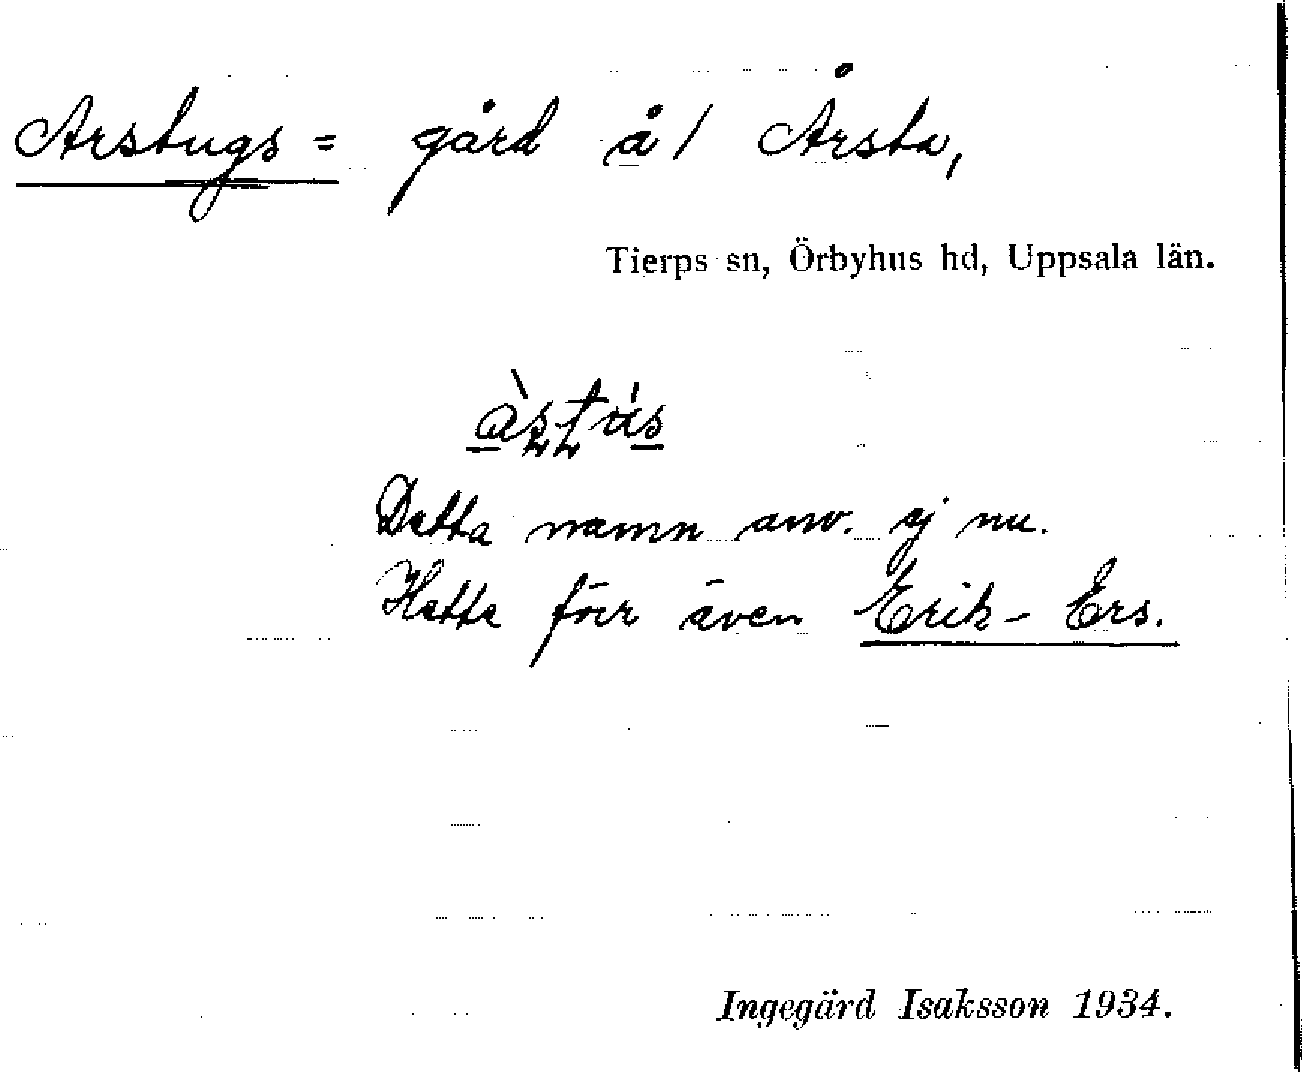 Arstugs = gård å/ Årsta,
Tierps sn, Örbyhus hd, Uppsala län.
Detta namn anv. ej nu.
Hette förr även Erik-Ers.
Ingegärd Isaksson 1934.